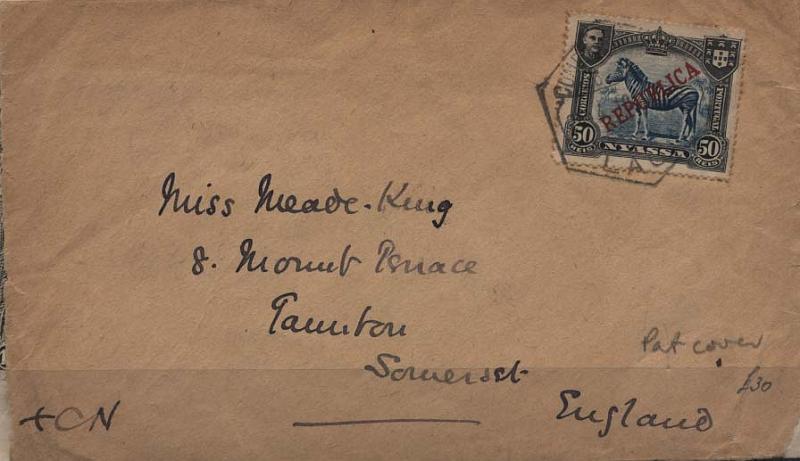 REPUBLICA
CORREIOS
PORTUGAL
50 NYASSA 50
REIS REIS
LAGO
Miss Meade-King
8. Mount Terrace
Taunton
Somerset
England
+CN
cover
£30